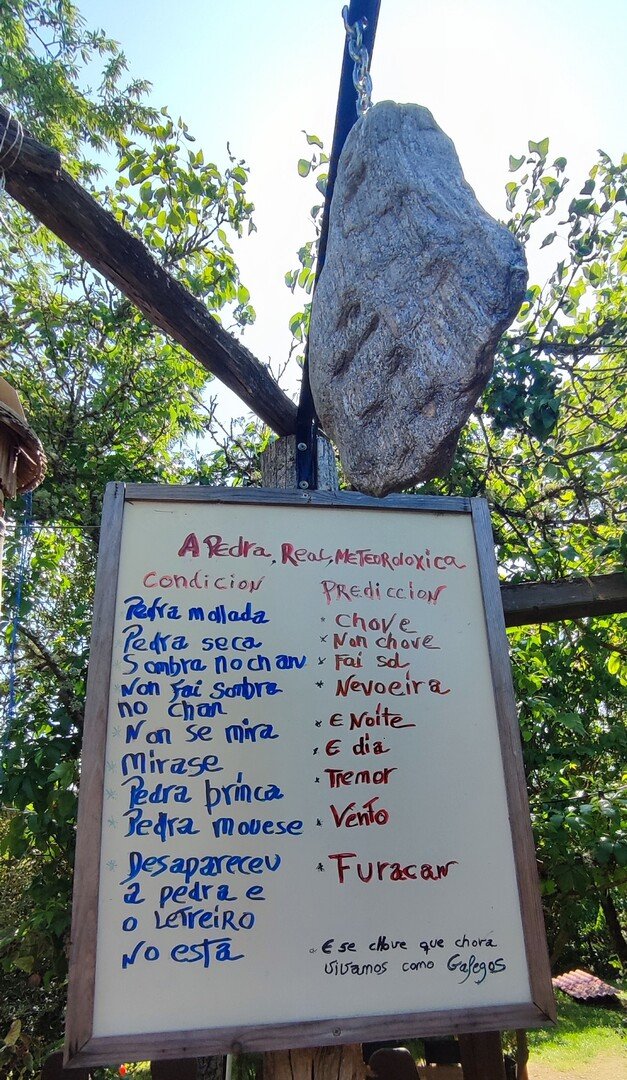 A Pedra, Real, Meteroloxica
Condicion
Prediccion
Pedra mollada
* Chove
Pedra seca
* Non chove
Sombra no chan
* Fai sol
Non fai sombra
no chan
* Nevoeira
Non se mira
* E Noite
Mirase
* E dia
Pedra brinca
* Tremor
Pedra movese
* Vento
Desapareceu
a pedra e
o Letreiro
No está
* Furacan
E se chove que chova
vivamos como Galegos